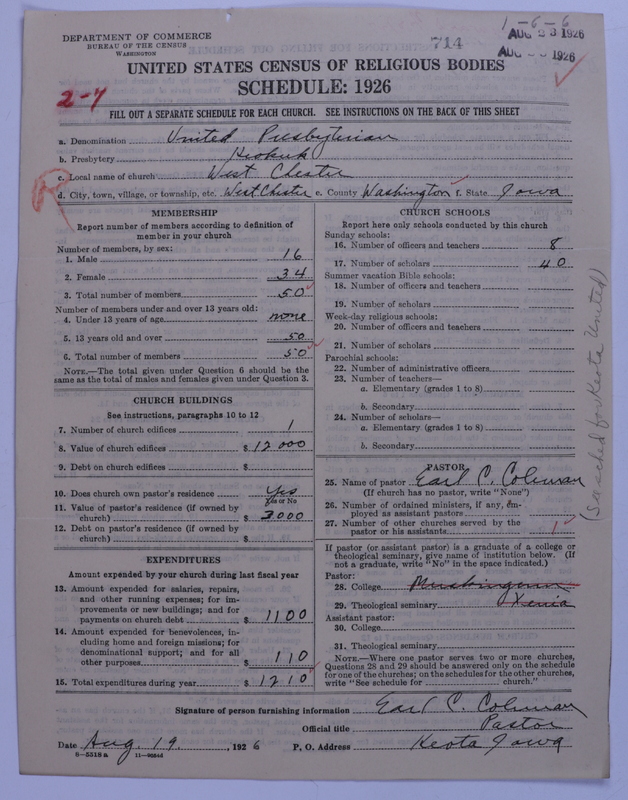 1-6-6
DEPARTMENT OF COMMERCE
BUREAU OF THE CENSUS
WASHINGTON
714
AUG 23 1926
AUG 1926
UNITED STATES CENSUS OF RELIGIOUS BODIES
SCHEDULE: 1926
2-7
FILL OUT A SEPARATE SCHEDULE FOR EACH CHURCH. SEE INSTRUCTIONS ON THE BACK OF THIS SHEET
a. Denomination United Presbyterian
b. Presbytery Keokuk
c. Local name of church West Chester
d. City, town, village, or township, etc. West Chester e. County Washington f. State Iowa
MEMBERSHIP
Report number of members according to definition of
member in your church
Number of members, by sex:
1. Male 16
2. Female 34
3. Total number of members 50
Number of members under and over 13 years old:
4. Under 13 years of age none
5. 13 years old and over 50
6. Total number of members 50
NOTE.—The total given under Question 6 should be the
same as the total of males and females given under Question 3.
CHURCH BUILDINGS
See instructions, paragraphs 10 to 12
7. Number of church edifices 1
8. Value of church edifices $ 12000
9. Debt on church edifices $
10. Does church own pastor's residence Yes
Yes or No
11. Value of pastor's residence (if owned by
church) $ 3000
12. Debt on pastor's residence (if owned by
church) $
EXPENDITURES
Amount expended by your church during last fiscal year
13. Amount expended for salaries, repairs,
and other running expenses; for im-
provements or new buildings; and for
payments on church debt $ 1100
14. Amount expended for benevolences, in-
cluding home and foreign missions; for
denominational support; and for all
other purposes $ 110
15. Total expenditures during year $ 1210
CHURCH SCHOOLS
Report here only schools conducted by this church
Sunday schools:
16. Number of officers and teachers 8
17. Number of scholars 40
Summer vacation Bible schools:
18. Number of officers and teachers
19. Number of scholars
Week-day religious schools:
20. Number of officers and teachers
21. Number of scholars
Parochial schools:
22. Number of administrative officers
23. Number of teachers—
a. Elementary (grades 1 to 8)
b. Secondary
24. Number of scholars—
a. Elementary (grades 1 to 8)
b. Secondary
PASTOR
25. Name of pastor Earl C. Coleman
(If church has no pastor, write "None")
26. Number of ordained ministers, if any, em-
ployed as assistant pastors
27. Number of other churches served by the
pastor or his assistants 1
If pastor (or assistant pastor) is a graduate of a college or
theological seminary, give name of institution below. (If
not a graduate, write "No" in the space indicated.)
Pastor:
28. College Muskingum
29. Theological seminary Xenia
Assistant pastor:
30. College
31. Theological seminary
NOTE.—Where one pastor serves two or more churches,
Questions 28 and 29 should be answered only on the schedule
for one of the churches; on the schedules for the other churches,
write "See schedule for church."
(See sched for Keota United)
Signature of person furnishing information Earl C. Coleman
Official title Pastor
Date Aug. 19, 1926 P. O. Address Keota Iowa
8-5318a